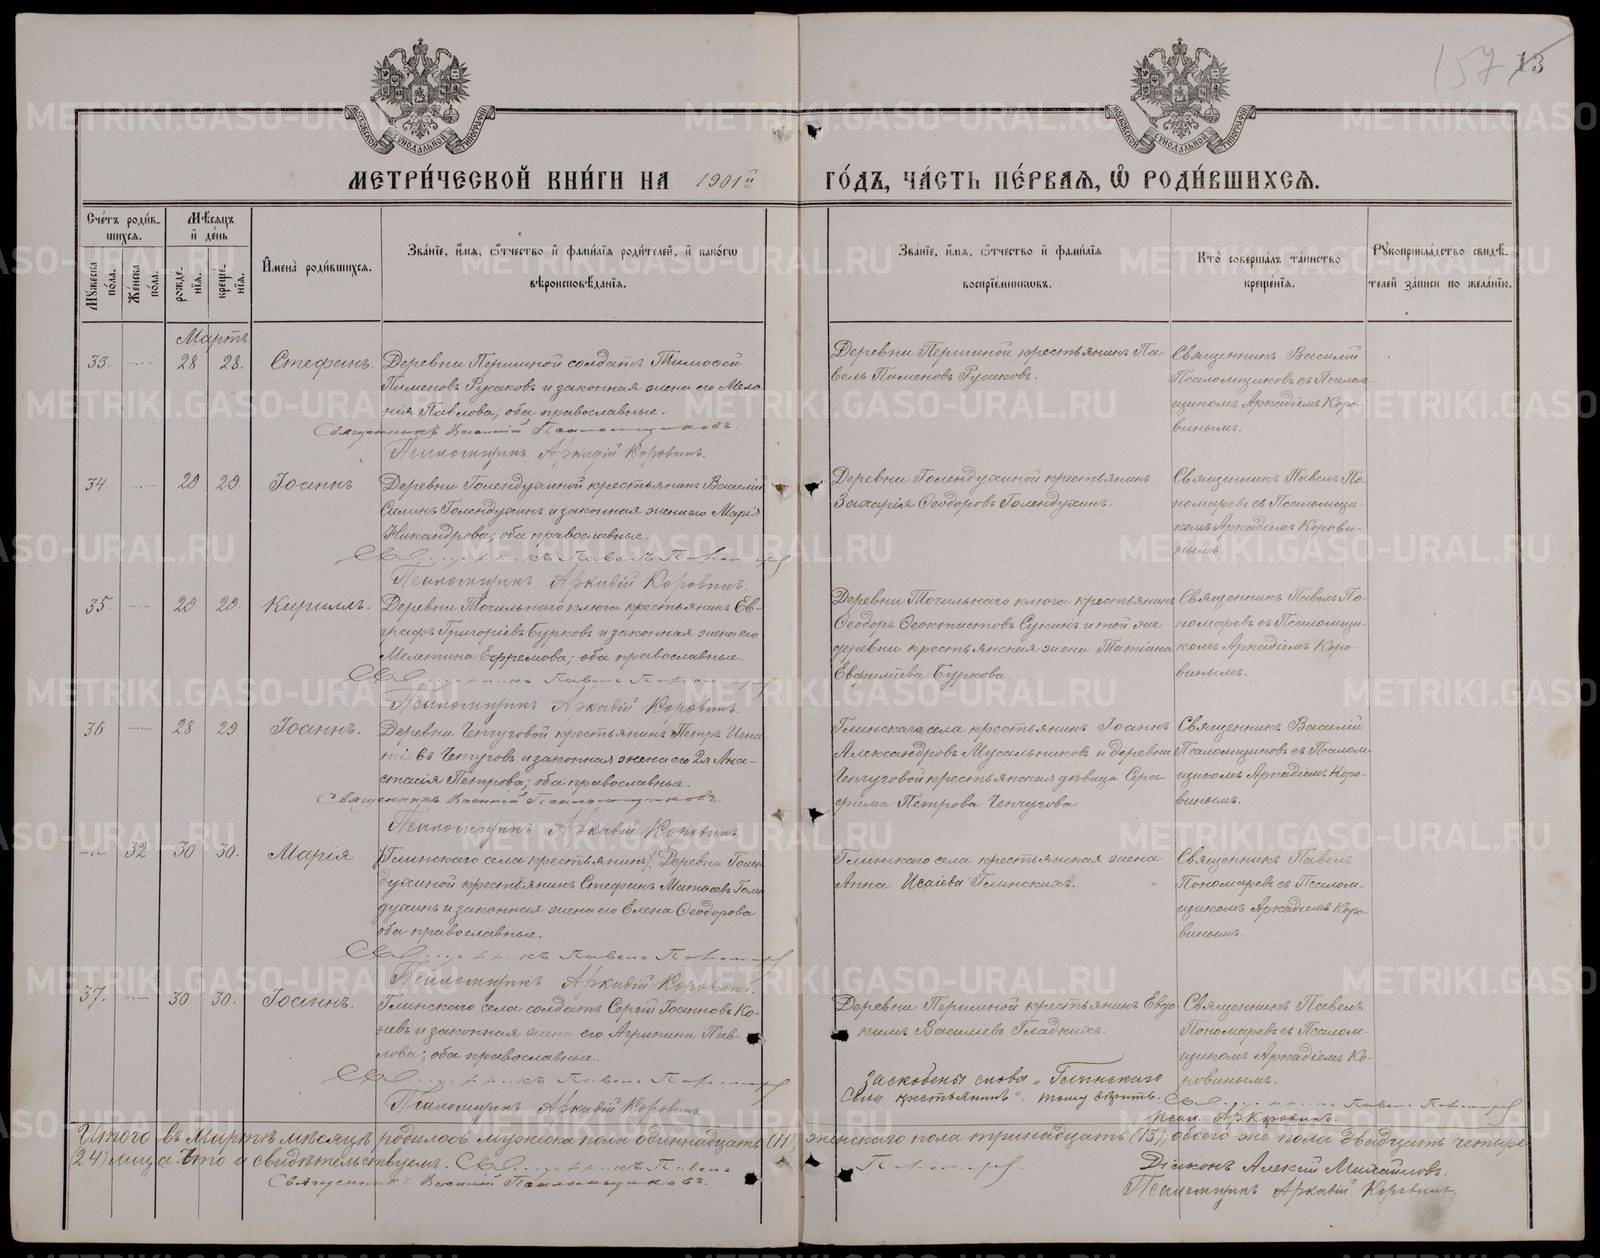 157 13
МОСКОВСКОЙ СѴНОДАЛЬНОЙ ТИПОГРАФІИ
МОСКОВСКОЙ СѴНОДАЛЬНОЙ ТИПОГРАФІИ
МЕТРИ́ЧЕСКОЙ КНИ́ГИ НА 1901й ГО́ДЪ, ЧА́СТЬ ПЕ́РВАѦ, Ѡ РОДИ́ВШИХСѦ.
Сче́тъ роди́в-
шихся.
Мѣ́сяцъ
и де́нь
Мꙋ́жеска по́ла.
Же́нска по́ла.
рожде́-
нїя.
креще́-
нїя.
Имена̀ роди́вшихся.
Зва́нїе, и́мя, ѻ́тчество и фами́лїя роди́телей, и како́гѡ
вѣроисповѣ́данїя.
Зва́нїе, и́мя, ѻ́тчество и фами́лїя
воспрїе́мникѡвъ.
Кто̀ соверша́лъ та́инство
креще́нїя.
Рꙋкоприкла́дство свидѣ́-
телей за́писи по жела́нїю.
Мартъ
33. — 28 28. Стефанъ.
Деревни Першиной солдатъ Тимофей
Пименовъ Русаковъ и законная жена его Мела-
нія Павлова; оба православные.
Священникъ Василій Псаломщиковъ.
Псаломщикъ Аркадій Коровинъ.
Деревни Першиной крестьянинъ Па-
велъ Пименовъ Русаковъ.
Священникъ Василій
Псаломщиковъ съ Псалом-
щикомъ Аркадіемъ Коро-
винымъ.
34. — 29 29. Іоаннъ
Деревни Голендухиной крестьянинъ Василій
Силинъ Голендухинъ и законная жена его Марія
Никандрова; оба православные.
Священникъ Павелъ Пономаревъ
Псаломщикъ Аркадій Коровинъ.
Деревни Голендухиной крестьянинъ
Захарія Ѳеодоровъ Голендухинъ.
Священникъ Павелъ По-
номаревъ съ Псаломщи-
комъ Аркадіемъ Корови-
нымъ.
35. — 29 29. Кириллъ.
Деревни Точильнаго ключа крестьянинъ Ев-
графъ Григоріевъ Бурковъ и законная жена его
Мелетина Ефремова; оба православные.
Священникъ Павелъ Пономаревъ
Псаломщикъ Аркадій Коровинъ.
Деревни Точильнаго ключа крестьянинъ
Ѳеодоръ Ѳеоктистовъ Сукинъ и той же
деревни крестьянская жена Татіана
Евфиміева Буркова.
Священникъ Павелъ По-
номаревъ съ Псаломщи-
комъ Аркадіемъ Коро-
винымъ.
36 — 28. 29 Іоаннъ.
Деревни Чепчуговой крестьянинъ Петръ Игна-
тіевъ Чепчуговъ и законная жена его 2я Ана-
стасія Петрова; оба православные.
Священникъ Василій Псаломщиковъ.
Псаломщикъ Аркадій Коровинъ
Глинскаго села крестьянинъ Іоаннъ
Александровъ Мусальниковъ и деревни
Чепчуговой крестьянская дѣвица Сера-
фима Петрова Чепчугова
Священникъ Василій
Псаломщиковъ съ Псалом-
щикомъ Аркадіемъ Коро-
винымъ.
— 32 30 30. Марія
(Глинскаго села крестьянинъ). Деревни Голен-
духиной крестьянинъ Стефанъ Матѳеевъ Голен-
духинъ и законная жена его Елена Ѳеодорова
оба православные.
Священникъ Павелъ Пономаревъ
Псаломщикъ Аркадій Коровинъ.
Глинскаго села крестьянская жена
Анна Исаіева Глинскихъ.
Священникъ Павелъ
Пономаревъ съ Псалом-
щикомъ Аркадіемъ Коро-
винымъ.
37. — 30 30. Іоаннъ.
Глинскаго села солдатъ Сергій Іоанновъ Ко-
невъ и законная жена его Агрипина Пав-
лова; оба православные.
Священникъ Павелъ Пономаревъ
Псаломщикъ Аркадій Коровинъ
Деревни Першиной крестьянинъ Евдо-
кимъ Василіевъ Гладкихъ.
Священникъ Павелъ
Пономаревъ съ Псалом-
щикомъ Аркадіемъ Ко-
ровинымъ.
Заскоблены слова „Глинскаго
села крестьянинъ“ тому вѣрить. Священникъ Павелъ Пономаревъ
Псал. Ар. Коровинъ.
Итого въ Мартѣ мѣсяцѣ родилось мужска пола одиннадцать (11), женскаго пола тринадцать (13), обоего же пола двадцать четыре
(24) лица. Что и свидѣтельствуемъ. Священникъ Павелъ Пономаревъ.
Священникъ Василій Псаломщиковъ.
Діаконъ Алексій Михайловъ.
Псаломщикъ Аркадій Коровинъ.
METRIKI.GASO-URAL.RU